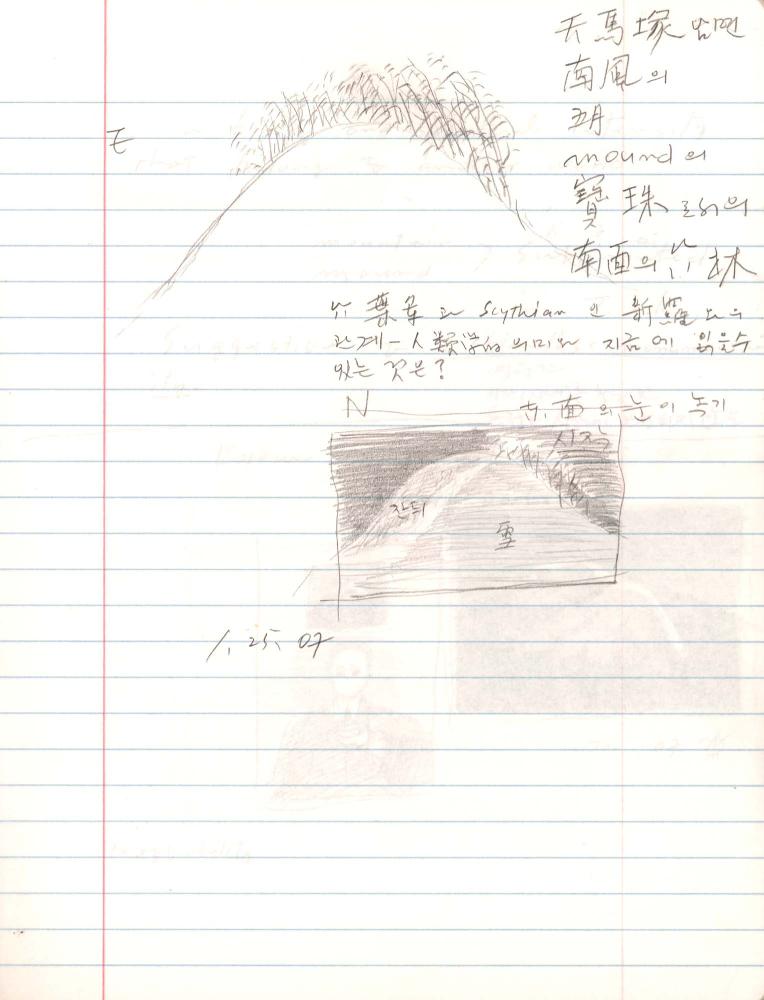 天馬塚 남면
南風의
五月
mound의
寶珠로서의
南面의 竹林
E
竹葉軍과 Scythian인 新羅와의
관계-人類学的 의미와 지금에 읽을수
있는 것은?
N
南面의 눈이 녹기
시작
잔듸
雪
1. 25. 07